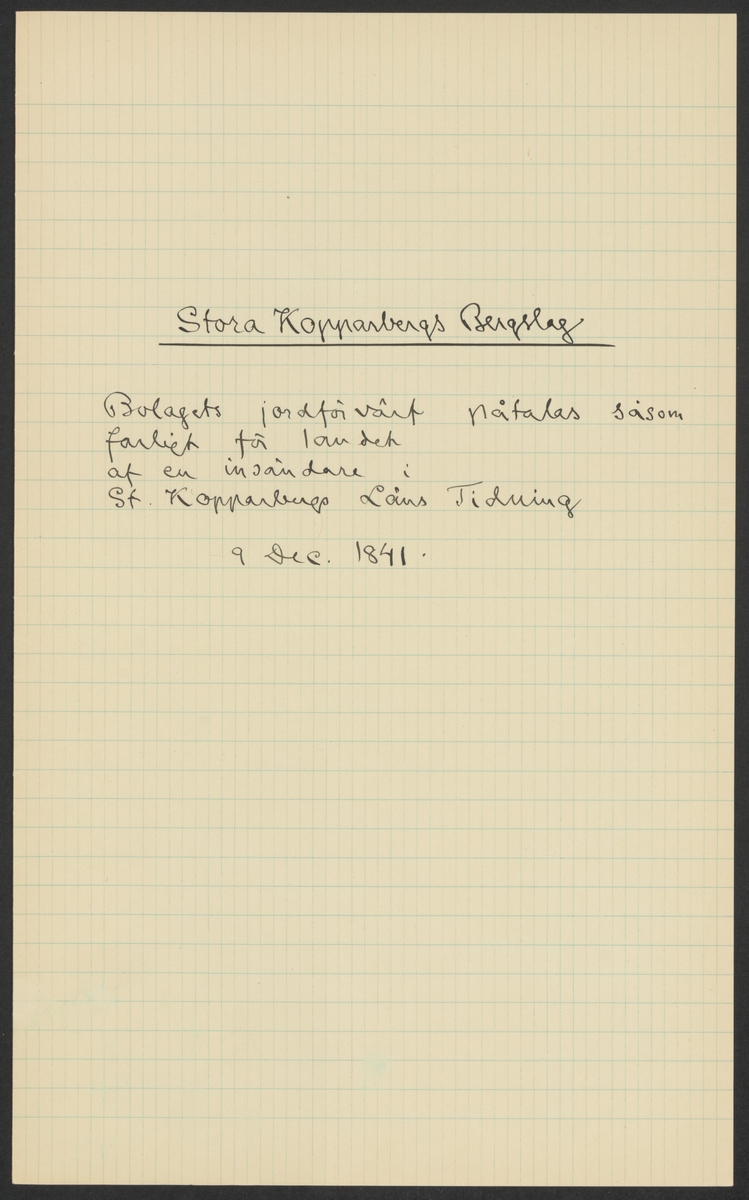 Stora Kopparbergs Bergslag
Bolagets jordförvärf påtalas såsom
farligt för landet
af en insändare i
St. Kopparbergs Läns Tidning
9 Dec. 1841.